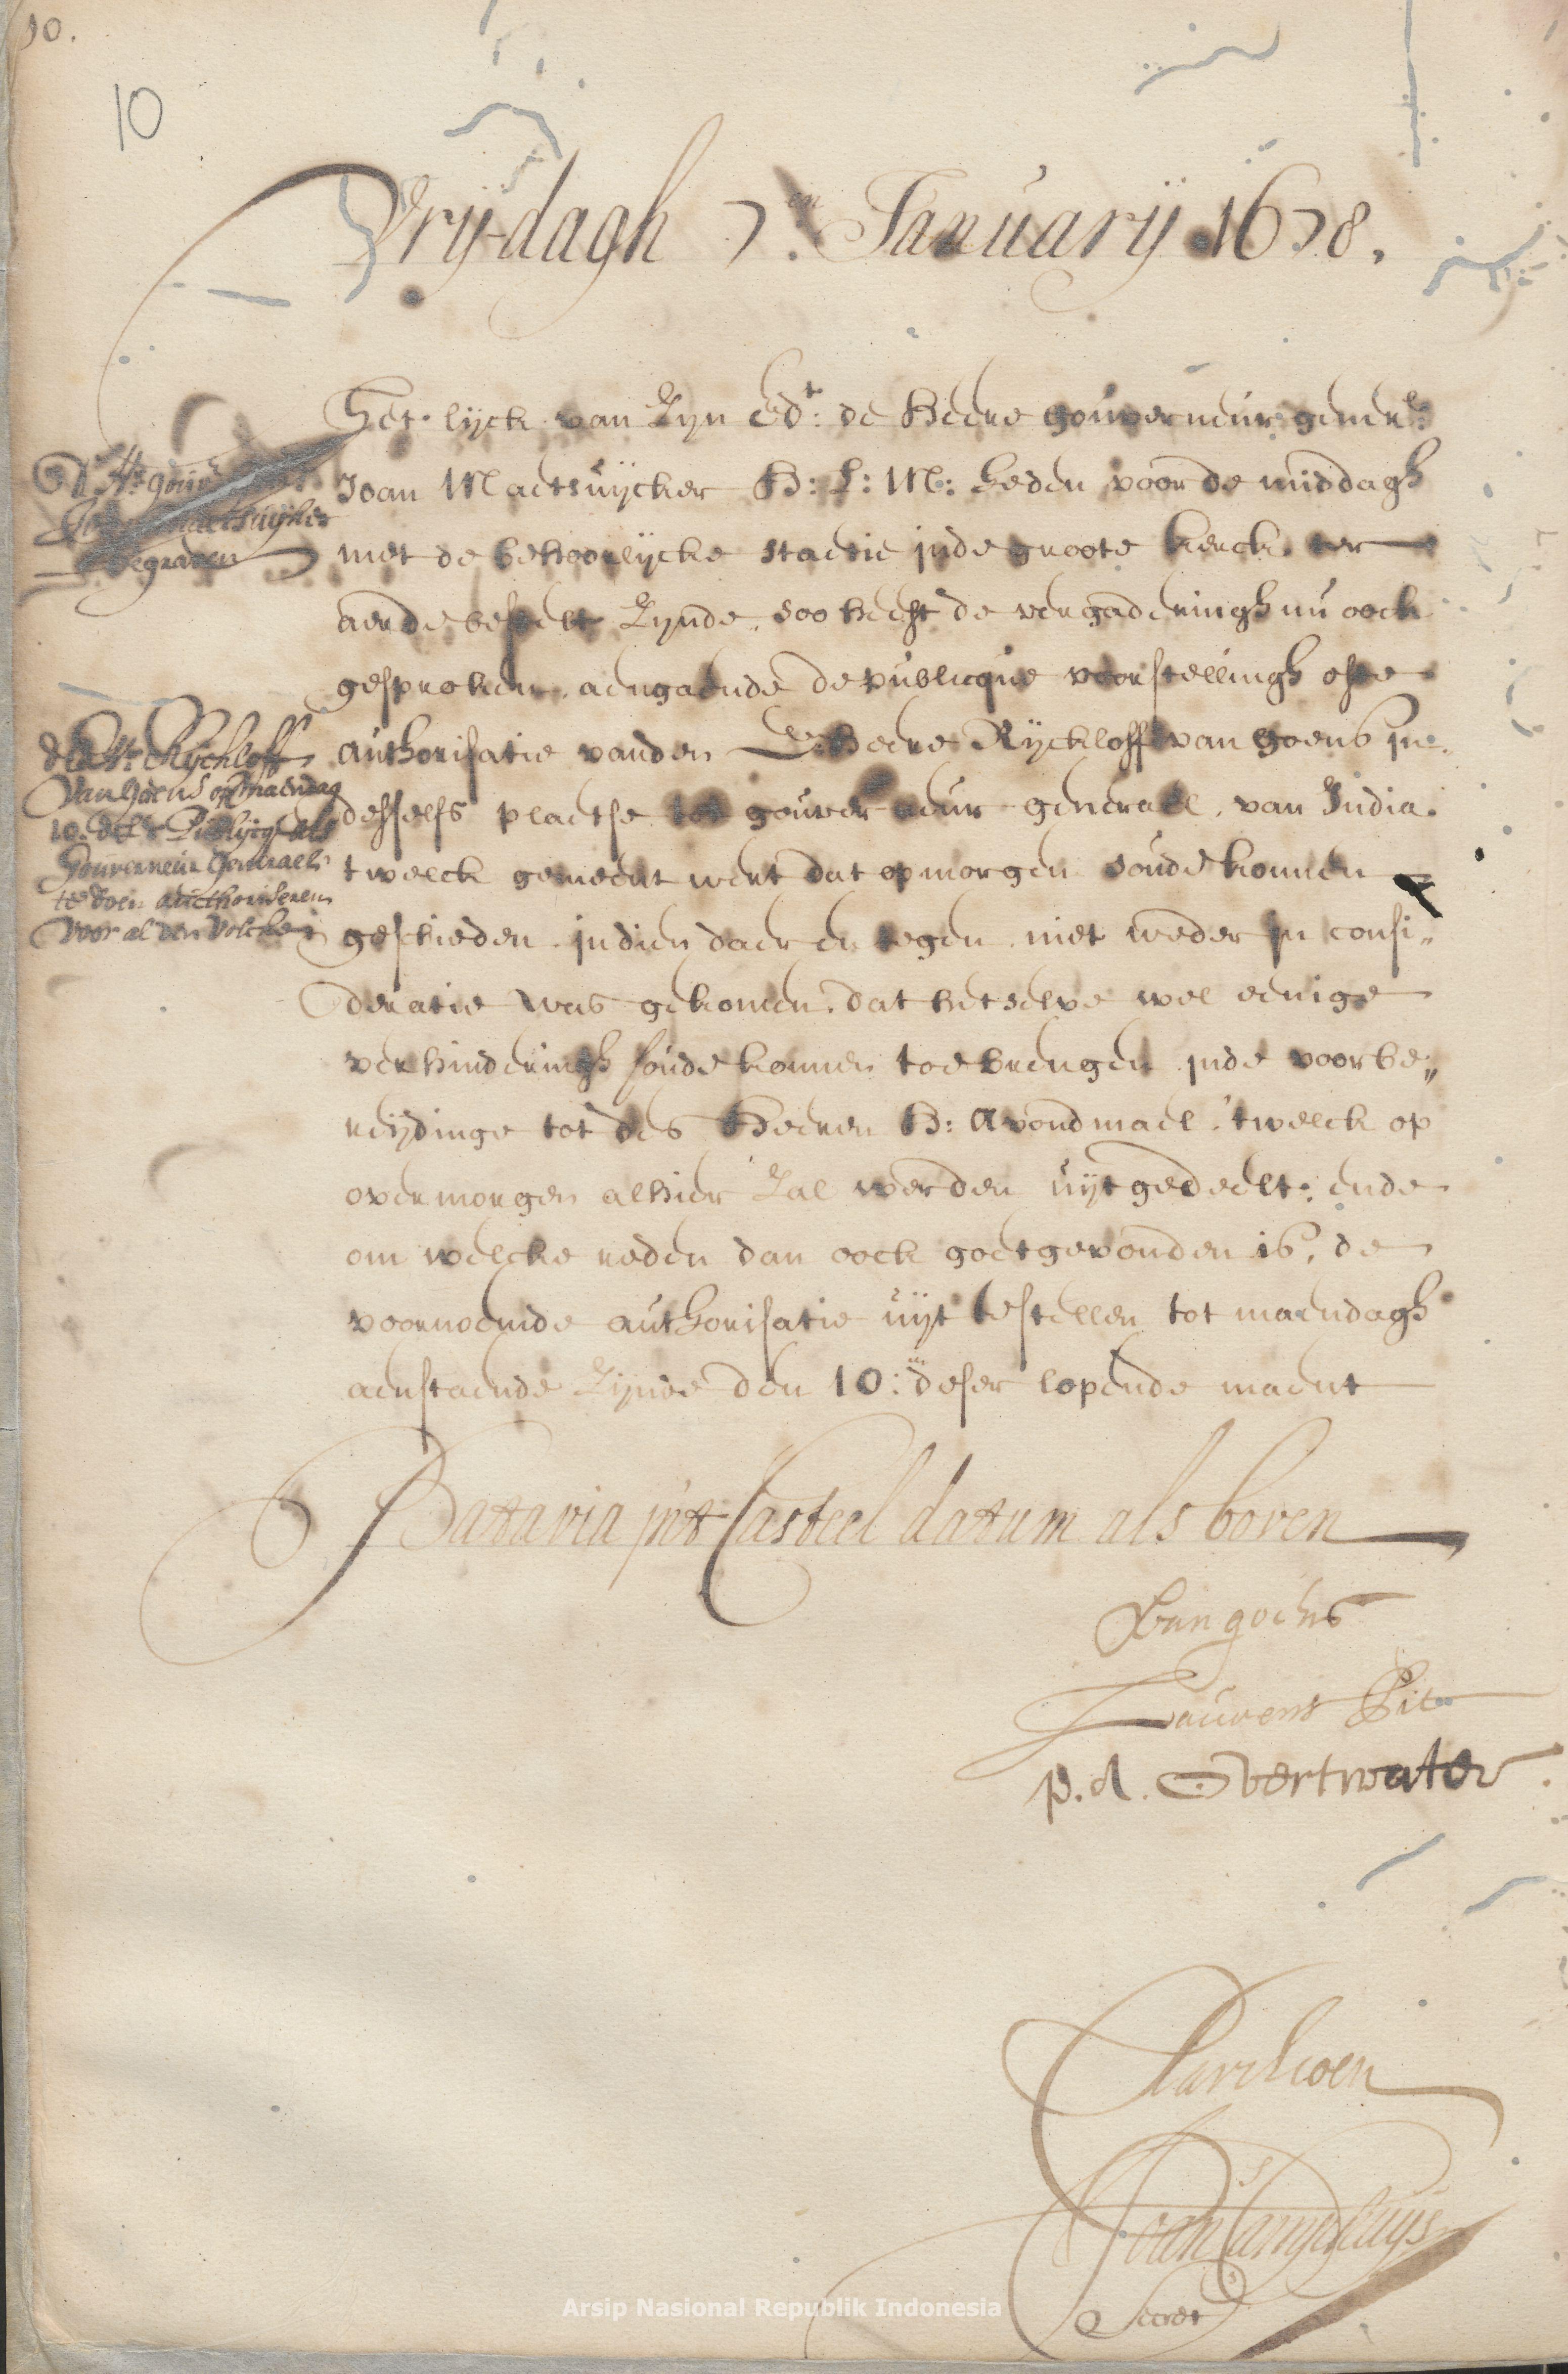 10.
10
Vrijdagh 7.en Januarij 1678.
Het lijck van Zyn Edt: de Heere gouverneur generl:
Joan Maetsuijcker H: L: M: heden voor de middagh
met de behoorlijcke statie inde groote kerck ter
aerde bestelt Zynde, soo heeft de vergaderingh nu oock
gesproken aengaende de publicque voorstellingh ofte
authorisatie vanden E: Heere Rijckloff van Goens in
desselfs plaetse tot gouverneur generael van India.
twelck gemeent wert dat op morgen soude konnen
geschieden indien daer en tegen niet weder in consi„
deratie was gekomen dat hetselve wel eenige
verhinderingh soude konnen toebrengen inde voorbe„
reijdinge tot des Heeren H: avondmael, 'twelck op
overmorgen alhier Zal werden uijtgedeelt; ende
om welcke reden dan oock goetgevonden is, de
voornoemde authorisatie uijt te stellen tot maendagh
aenstaende Zijnde den 10:en deser lopende maent
D' Hr. gouvr
Maetsuijker
begraven
d'Ed. Hr. Rijckloff
van Goens op maendag
10. deser als
Gouverneur Generael
te doen authoriseren
voor al den volcke
Batavia int Casteel datum als boven
Van goens
Laurens Pit
p. A. Overtwater
Pavilioen
Joan Camphuijs
Secrets
Arsip Nasional Republik Indonesia